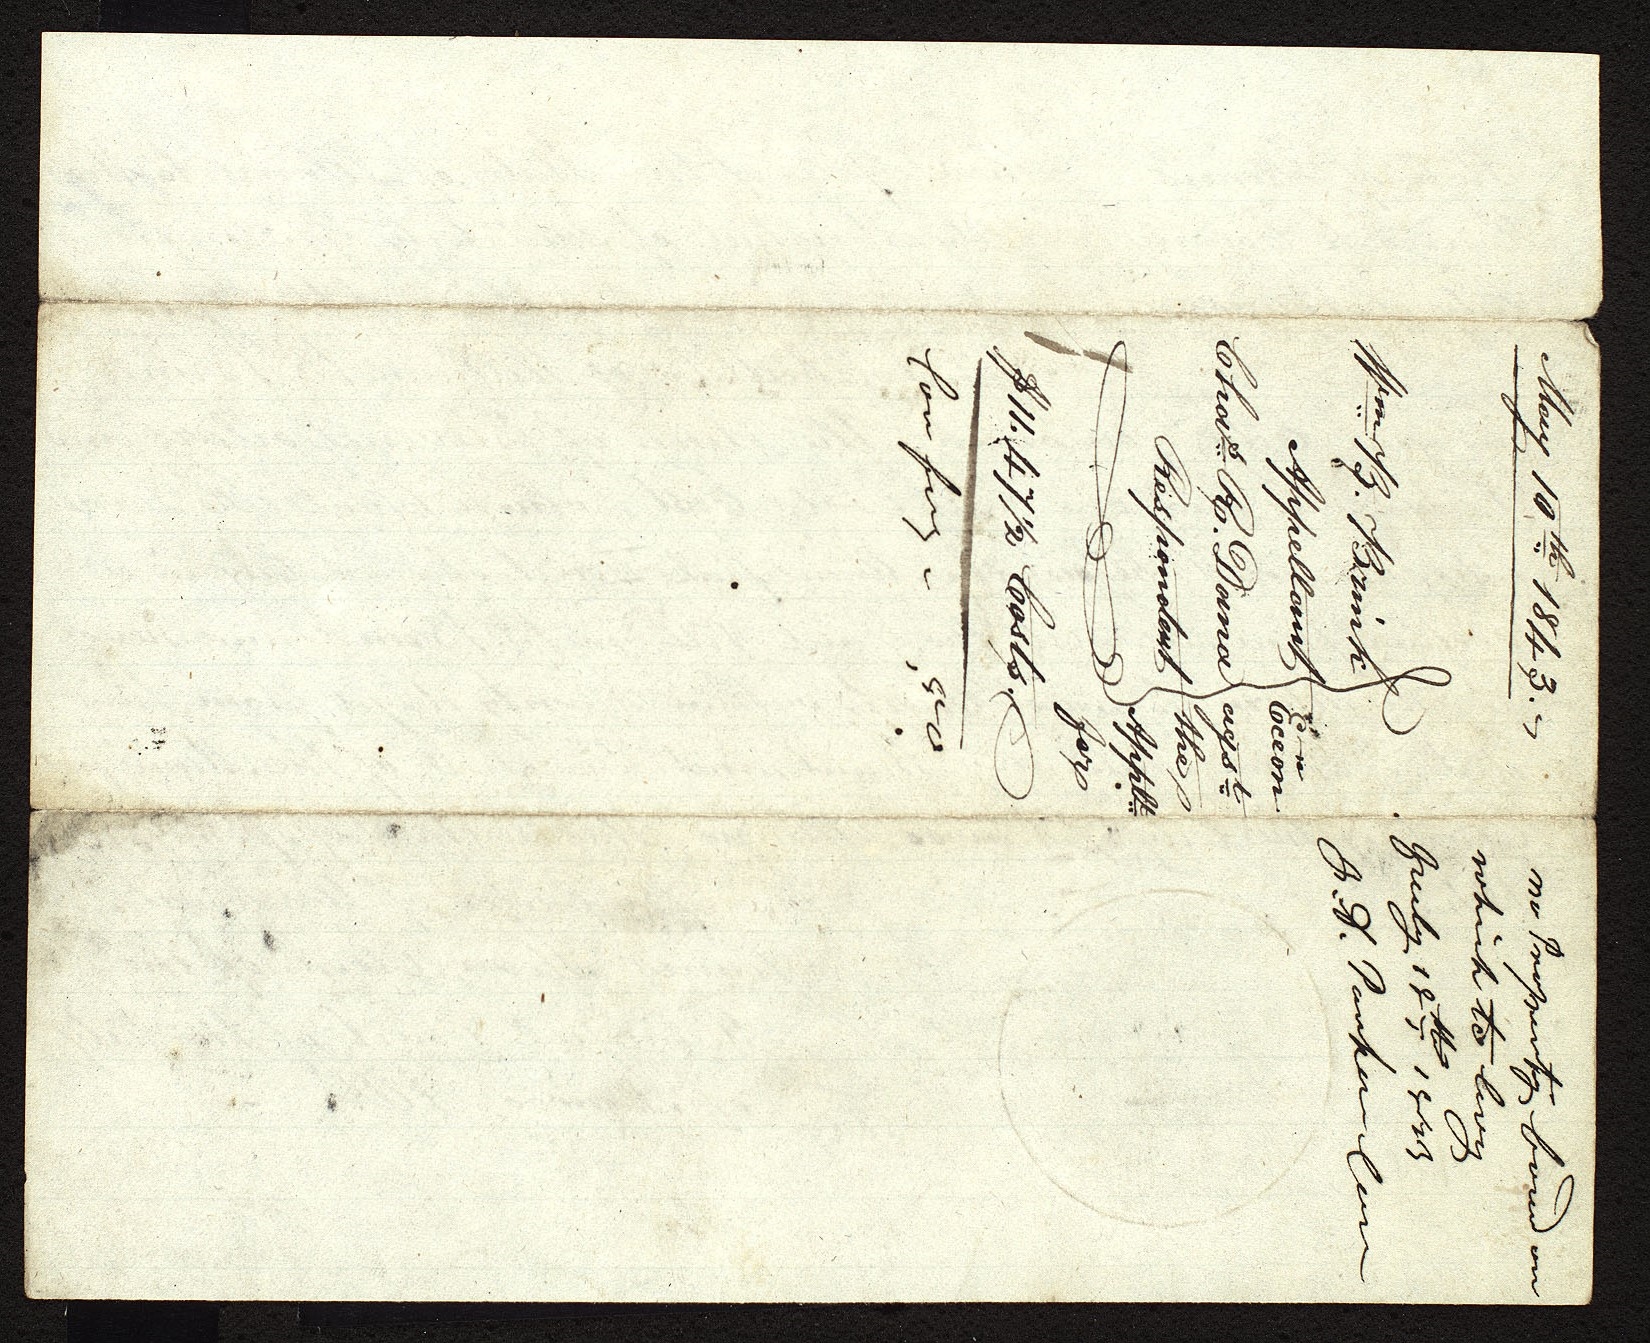 May 10th 1843.
Wm B. Brink
Appellant
Chas R. Dana
Respondent
Exn
agst
the
Applt
for
$11.47 1/2 Costs,
Con fees - ,50
no Property found on
which to levy
July 18th 1843
J. D. Parker Con